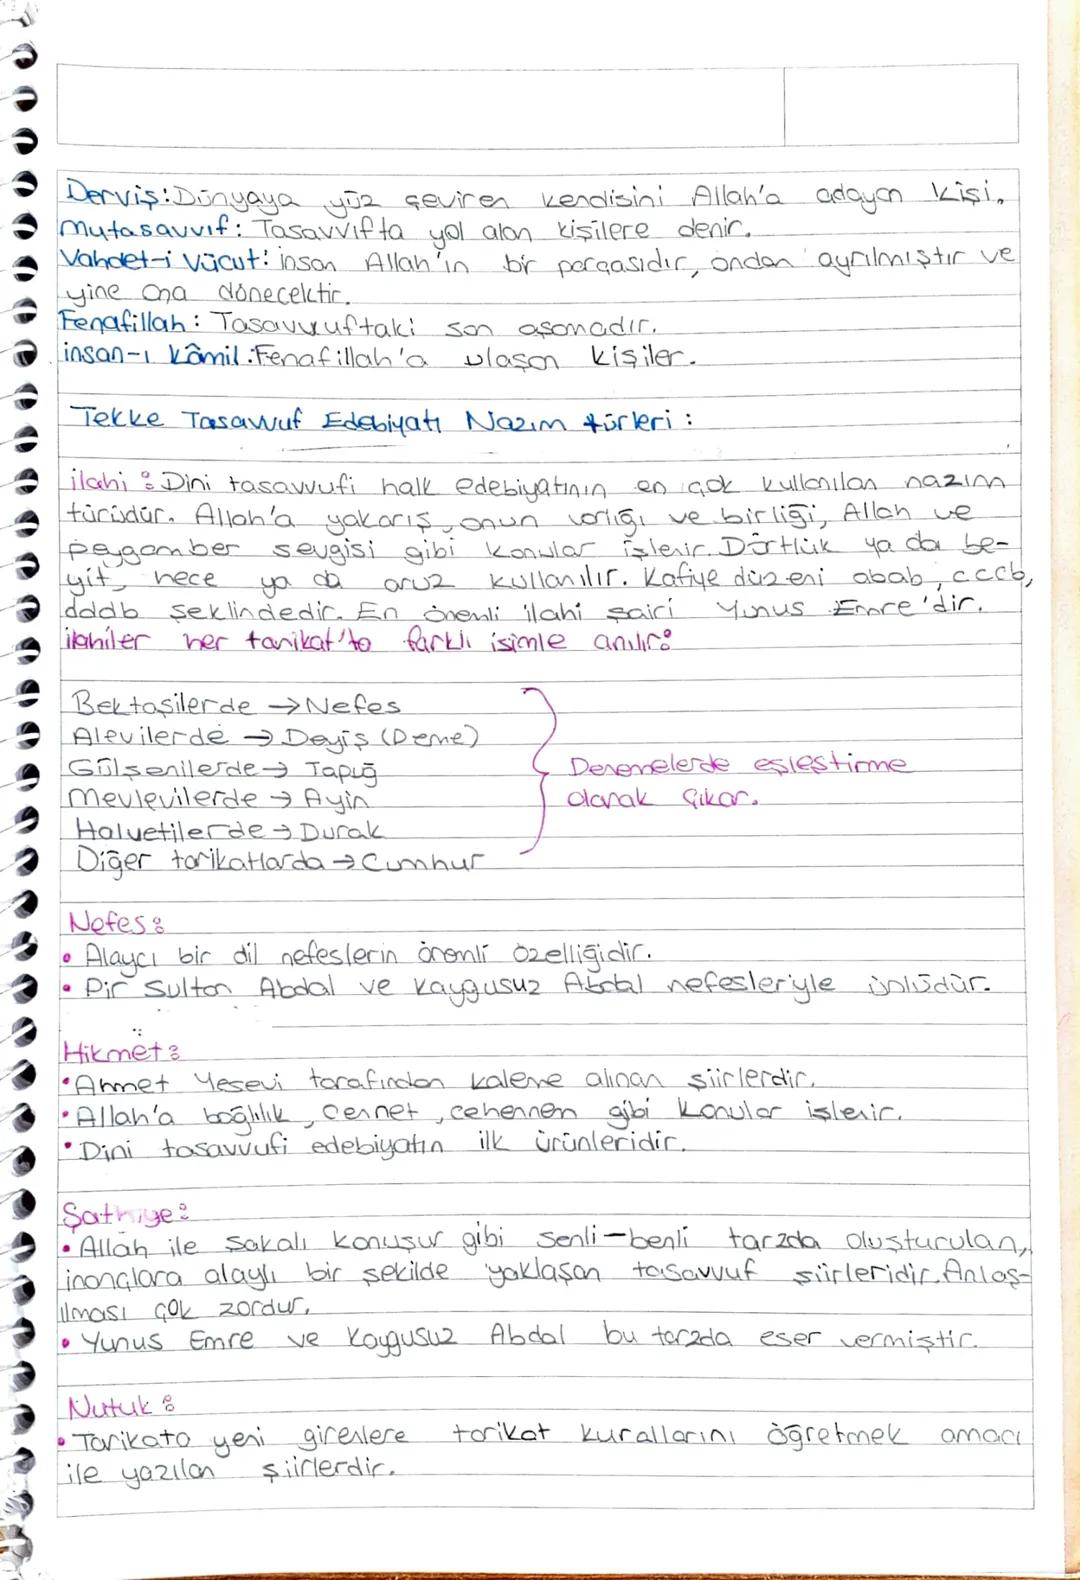 Derviş: Dünyaya yüz çeviren kendisini Allah'a adayan kişi.
Mutasavvıf: Tasavvıfta yol alan kişilere denir.
Vahdet-i Vücut: insan Allah'ın bir parçasıdır, ondan ayrılmıştır ve
yine ona dönecektir.
Fenafillah: Tasavvuftaki son aşamadır.
insan-ı kâmil: Fenafillah'a ulaşan kişiler.
Tekke Tasavvuf Edebiyatı Nazım türleri:
ilahi: Dini tasavvufi halk edebiyatının en çok kullanılan nazım
türüdür. Allah'a yakarış, onun varlığı ve birliği, Allah ve
peygamber sevgisi gibi konular işlenir. Dörtlük ya da be-
yit, hece ya da aruz kullanılır. Kafiye düzeni abab, cccb,
dddb şeklindedir. En önemli ilahi şairi Yunus Emre'dir.
ilahiler her tarikat'ta farklı isimle anılır:
Bektaşilerde → Nefes
Alevilerde → Deyiş (Deme)
Gülşenilerde → Tapuğ
Mevlevilerde → Ayin
Halvetilerde → Durak
Diğer tarikatlarda → Cumhur
Denemelerde eşleştirme
olarak çıkar.
Nefes:
• Alaycı bir dil nefeslerin önemli özelliğidir.
• Pir Sultan Abdal ve Kaygusuz Abdal nefesleriyle ünlüdür.
Hikmet:
• Ahmet Yesevi tarafından kaleme alınan şiirlerdir.
• Allah'a bağlılık, cennet, cehennem gibi konular işlenir.
• Dini tasavvufi edebiyatın ilk ürünleridir.
Şathiye:
• Allah ile şakalı konuşur gibi senli-benli tarzda oluşturulan,
inançlara alaylı bir şekilde yaklaşan tasavvuf şiirleridir. Anlaş-
ılması çok zordur.
• Yunus Emre ve Kaygusuz Abdal bu tarzda eser vermiştir.
Nutuk:
• Tarikata yeni girenlere tarikat kurallarını öğretmek amacı
ile yazılan şiirlerdir.